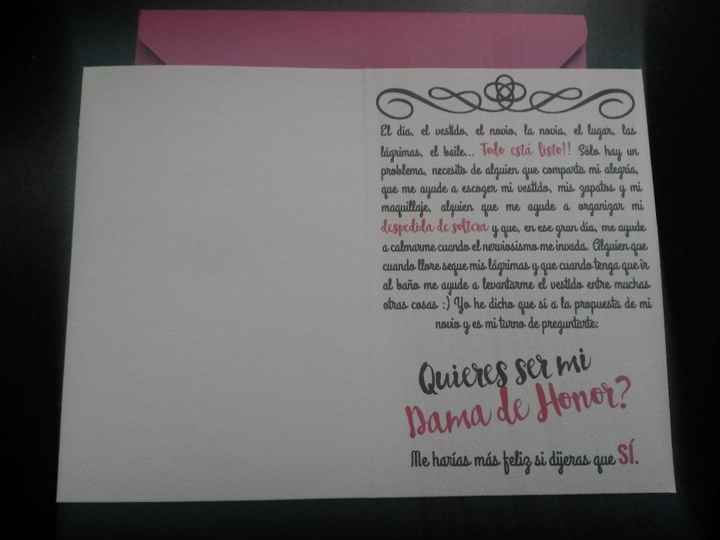 El día, el vestido, el novio, la novia, el lugar, las
lágrimas, el baile... Todo está listo!! Sólo hay un
problema, necesito de alguien que comparta mi alegría,
que me ayude a escoger mi vestido, mis zapatos y mi
maquillaje, alguien que me ayude a organizar mi
despedida de soltera y que, en ese gran día, me ayude
a calmarme cuando el nerviosismo me invada. Alguien que
cuando llore seque mis lágrimas y que cuando tenga que ir
al baño me ayude a levantarme el vestido entre muchas
otras cosas :) Yo he dicho que si a la propuesta de mi
novio y es mi turno de preguntarte:
Quieres ser mi
Dama de Honor?
Me harías más feliz si dijeras que SÍ.